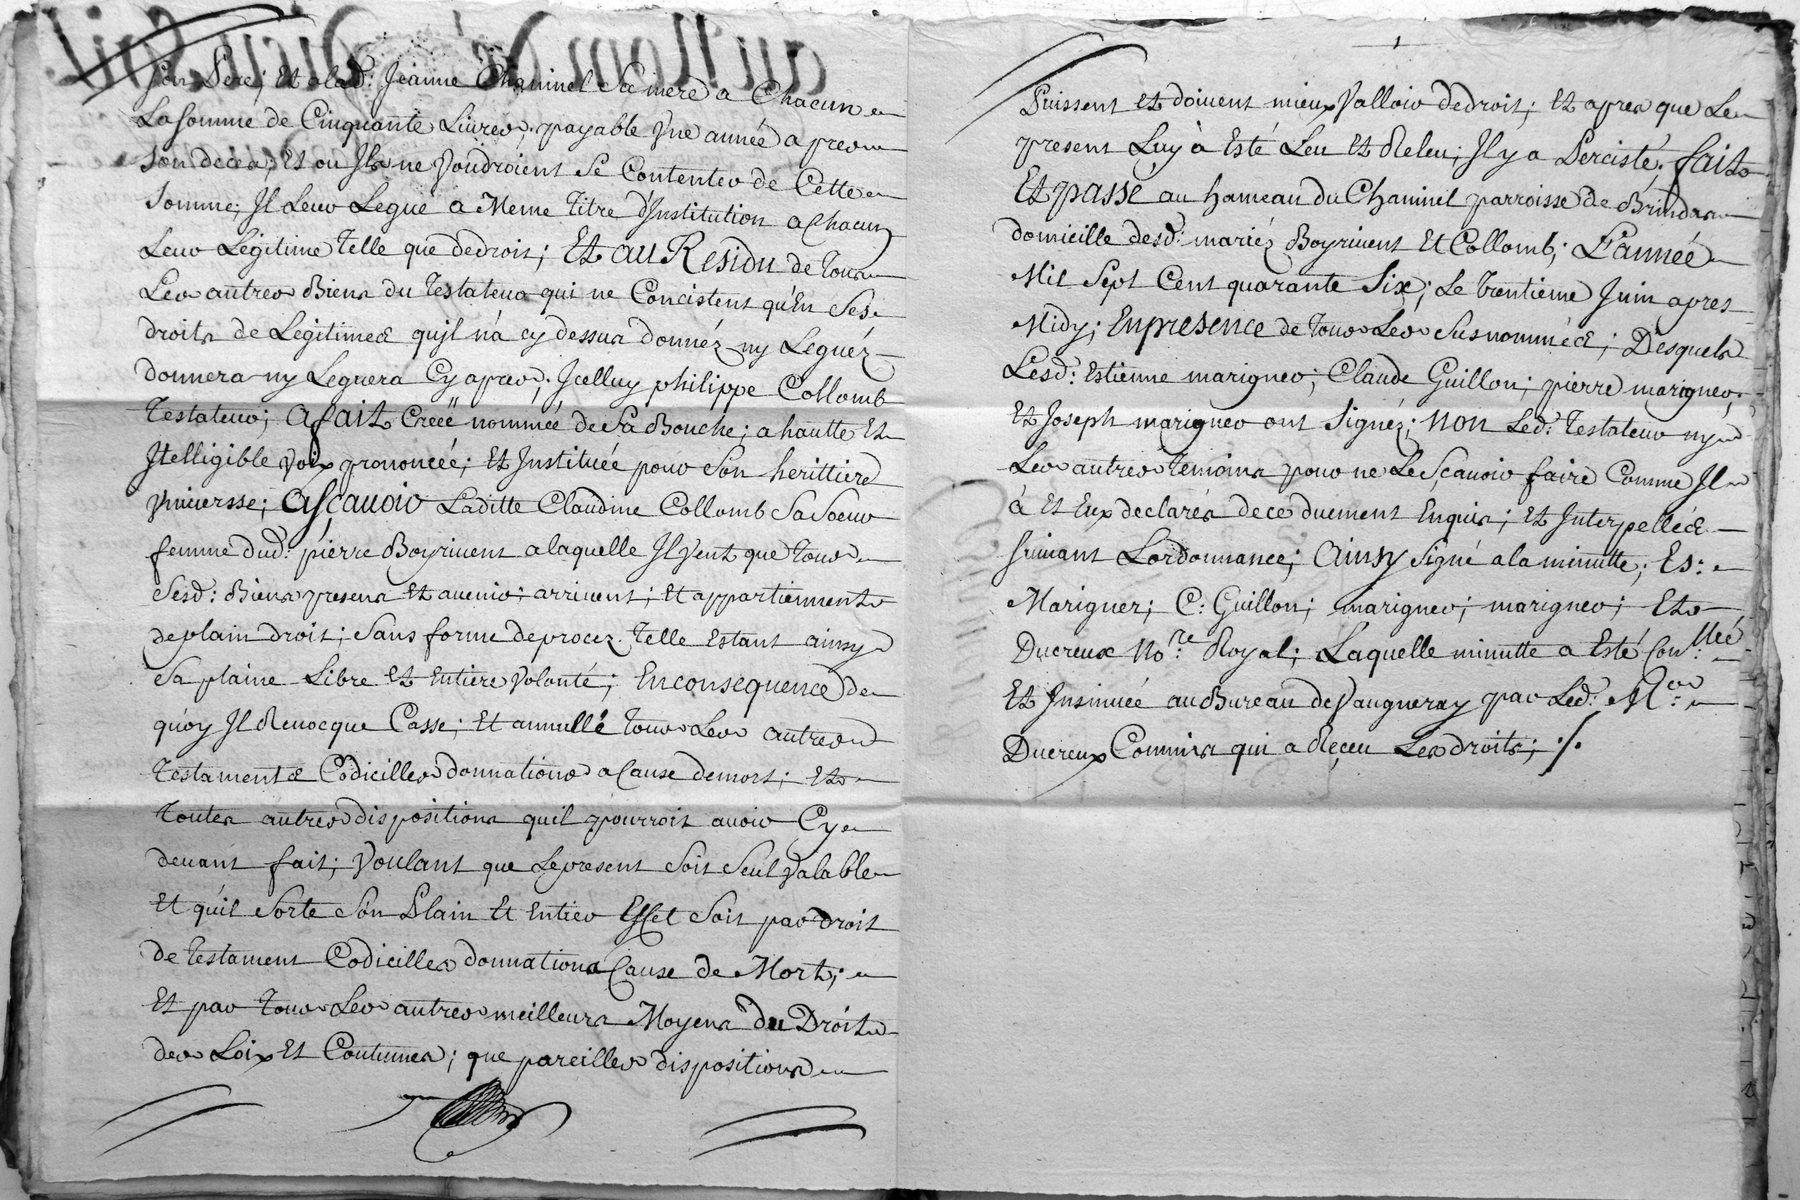 Son Pere; Et a lad: Jeanne Chaninel Sa mere a Chacun
La somme de Cinquante Livres, payable Une année apres
son deces; Et ou Ils ne Voudroient Se Contenter de Cette
Somme; Il Leur Legue a Meme Titre d'Institution a Chacun
Leur Légitime Telle que de droit; Et au Residu de Tous
Les autres Biens du Testateur qui ne Concistent qu'En Ses
droits de Legitimes qu'il n'a cy dessus donnéz ny Leguéz
donnera ny Leguera Cy apres; Icelluy philippe Collomb
Testateur; a fait Creéé nommée de Sa Bouche; a hautte Et
Itelligible Voix prononcéé; Et Instituée pour Son herittiere
Vniversse; a scavoir Laditte Claudine Collomb Sa Soeur
femme dud: pierre Boyrivent a laquelle Il Veut que Tous
Sesd: Biens presens Et avenir; arrivent; Et appartiennent
de plain droit; Sans forme de procez Telle Estant ainsy
Sa plaine Libre Et Entiere Volonté; En consequence de
quoy Il Revocque Casse; Et annullé Tous Les autres
Testaments Codicilles donnations a Cause de mort; Et
Toutes autres dispositions quil pourroit avoir Cy
devant fait; Voulant que Le present Soit Seul Valable
Et qu'il Sorte Son Plain Et Entier Effet Soit par droit
de Testament Codicilles donnations Cause de Mort;
Et par Tous Les autres meilleurs Moyens du Droit
des Loix Et Coutumes; que pareilles dispositions
Puissent et doivent mieux Valloir de droit; Et apres que Le
present Luy à Esté Leu Et Releu; Il y a Perciste; fait
Et passé au hameau du Chaninel parroisse de Brindas
domicille desd: mariéz Boyrivent Et Collomb; L'année
Mil Sept Cent quarante Six; Le trentieme Juin apres
Midy; En presence de Tous Les Susnommées; Desquels
Lesd: Estienne marigner; Claude Guillon; pierre marigner
Et Joseph marigner ont Signéz; Non Led: Testateur ny
Les autres Temoins pour ne Le Scavoir faire Comme Il
à Et Eux declarés de ce duement Enquis; Et Interpellés
suivant Lordonnance; Ainsy signé a la minutte; Es:
Marigner; C: Guillon; marigner; marigner; Et
Ducreux No:re Royal; Laquelle minutte a Esté Con:llée
Et Insinuée au Bureau de Vaugneray par Led: M:re
Ducreux Commis qui a Reçeu Les droits; ./.